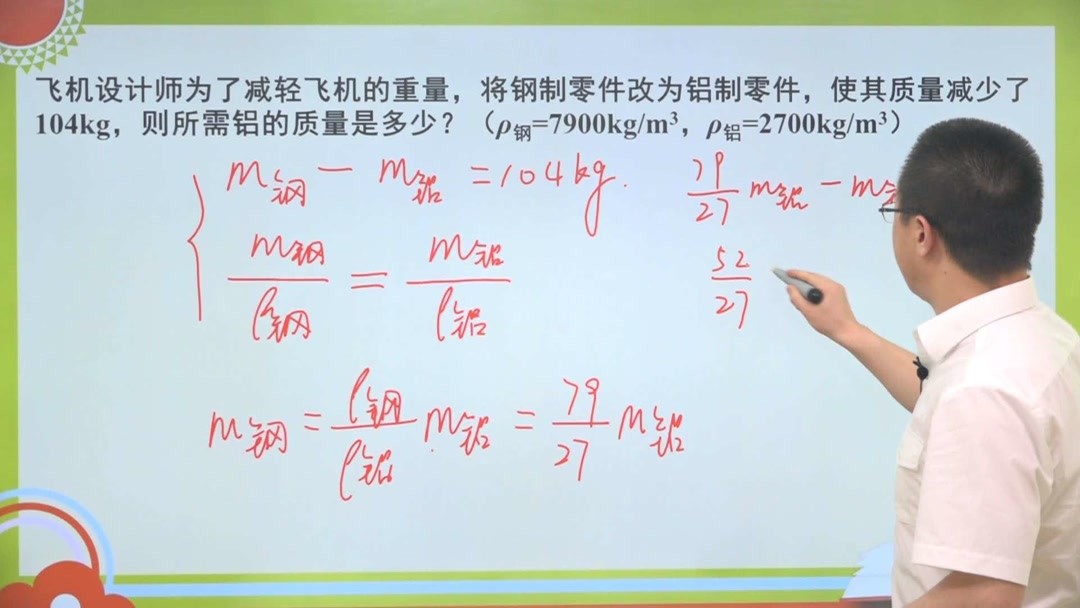 飞机设计师为了减轻飞机的重量，将钢制零件改为铝制零件，使其质量减少了
104kg，则所需铝的质量是多少？（ρ钢=7900kg/m³，ρ铝=2700kg/m³）
m钢 − m铝 = 104kg.
m钢/ρ钢 = m铝/ρ铝
m钢 = ρ钢/ρ铝 m铝 = 79/27 m铝
79/27 m铝 − m
52/27